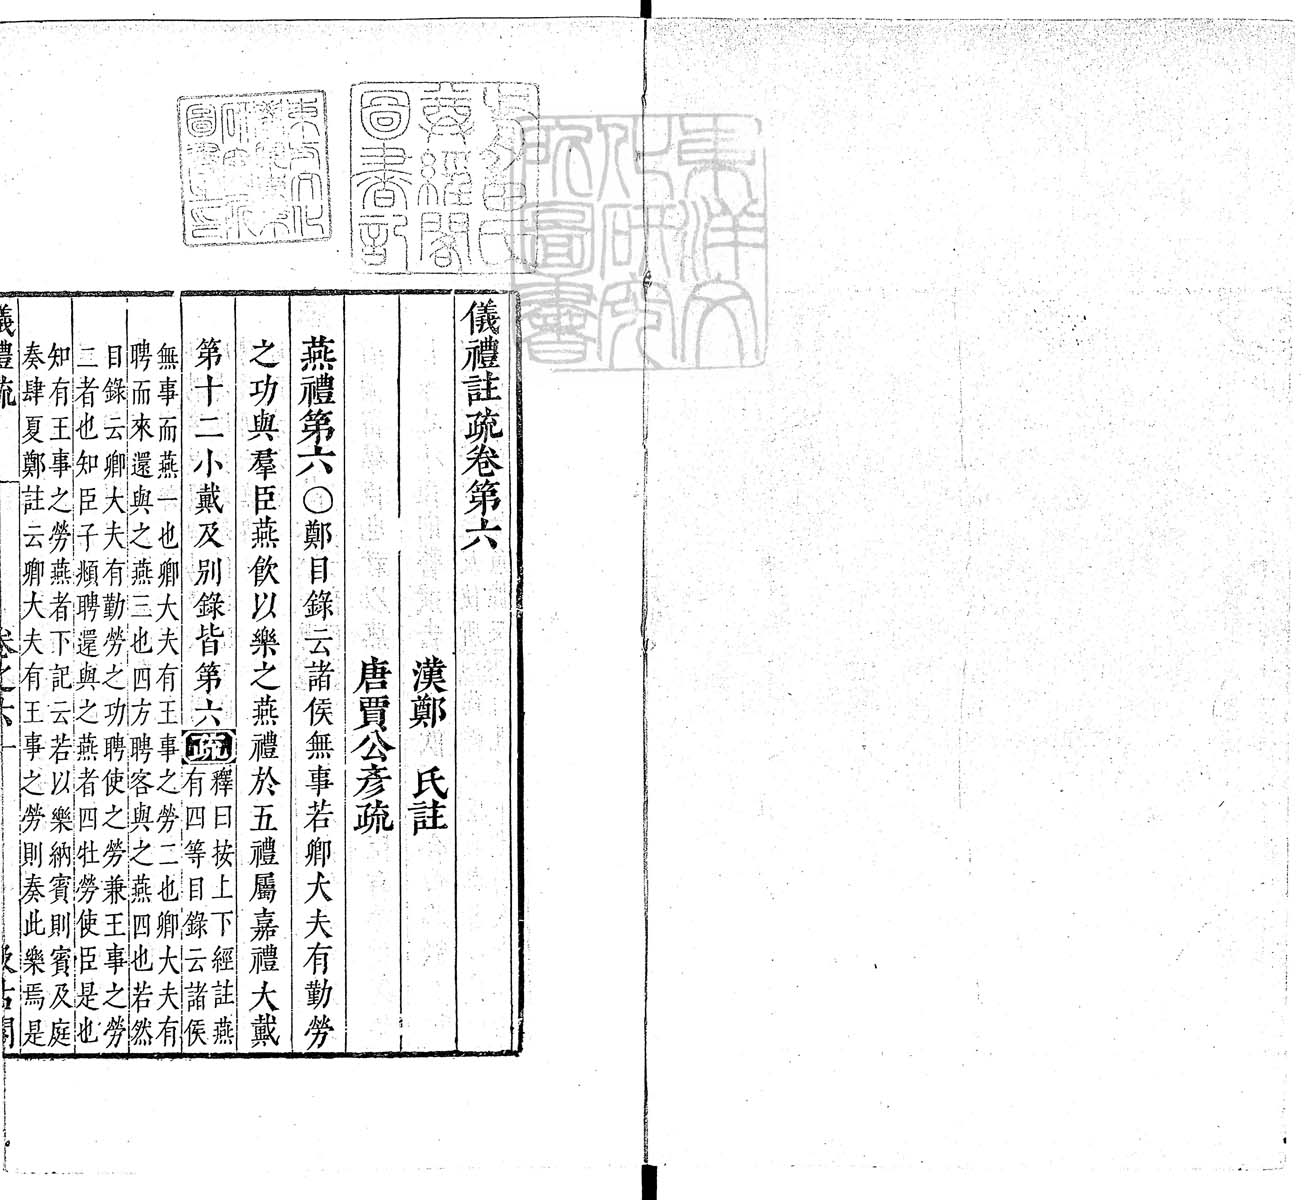 儀禮註疏卷第六
漢鄭　氏註
唐賈公彥疏
燕禮第六○鄭目錄云諸侯無事若卿大夫有勤勞
之功與羣臣燕飲以樂之燕禮於五禮屬嘉禮大戴
第十二小戴及別錄皆第六疏
釋曰按上下經註燕
有四等目錄云諸侯
無事而燕一也卿大夫有王事之勞二也卿大夫有
聘而來還與之燕三也四方聘客與之燕四也若然
目錄云卿大夫有勤勞之功聘使之勞兼王事之勞
二者也知臣子頻聘還與之燕者四牡勞使臣是也
知有王事之勞燕者下記云若以樂納賓則賓及庭
奏肆夏鄭註云卿大夫有王事之勞則奏此樂焉是
儀禮疏
卷之六
一
汲古閣
東方文化
研究所
圖書印
尊經閣
圖書記
東洋文
化研究
所圖書